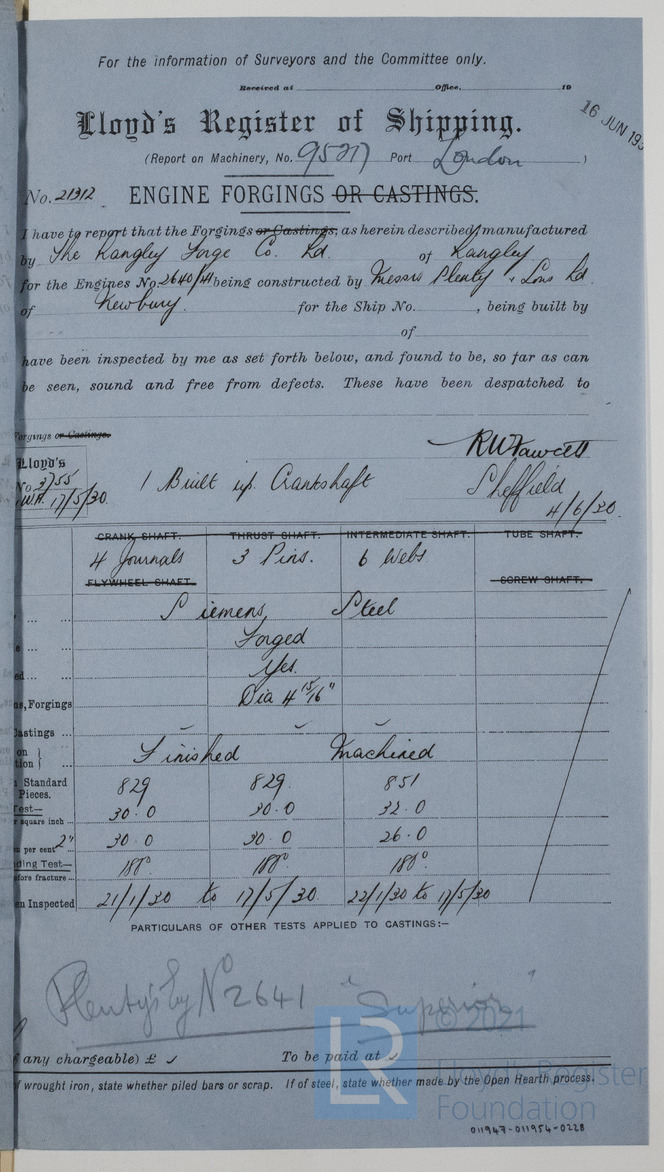 For the information of Surveyors and the Committee only.
Received at Office, 19
16 JUN 193
Lloyd's Register of Shipping.
(Report on Machinery, No. 95217 Port London )
No. 21912 ENGINE FORGINGS OR CASTINGS.
I have to report that the Forgings or Castings, as herein described, manufactured
by The Langley Forge Co. Ld. of Langley
for the Engines No. 2640/41 being constructed by Messrs Plenty & Sons Ld.
of Newbury. for the Ship No. , being built by
of
have been inspected by me as set forth below, and found to be, so far as can
be seen, sound and free from defects. These have been despatched to
Forgings or Castings.
RW Fawcett
Lloyd's
No 3755
17/5/30.
1 Built up Crankshaft
Sheffield
4/6/30.
CRANK SHAFT. THRUST SHAFT. INTERMEDIATE SHAFT. TUBE SHAFT.
4 Journals 3 Pins. 6 Webs
FLYWHEEL SHAFT. SCREW SHAFT.
Siemens Steel
Forged
Yes.
ns, Forgings Dia 4 15/16"
Castings ...
on
tion Finished Machined
Standard
Pieces. 829 829. 851
Test—
r square inch ... 30.0 30.0 32.0
n per cent 2" 30.0 30.0 26.0
ding Test— 180° 180° 180°
fore fracture ...
en Inspected 21/1/30 to 17/5/30. 22/1/30 to 17/5/30
PARTICULARS OF OTHER TESTS APPLIED TO CASTINGS:—
Plenty's No 2641 "Superior"
© 2021
any chargeable) £ To be paid at
f wrought iron, state whether piled bars or scrap. If of steel, state whether made by the Open Hearth process.
LR
Lloyd's Register
Foundation
011947-011954-0228